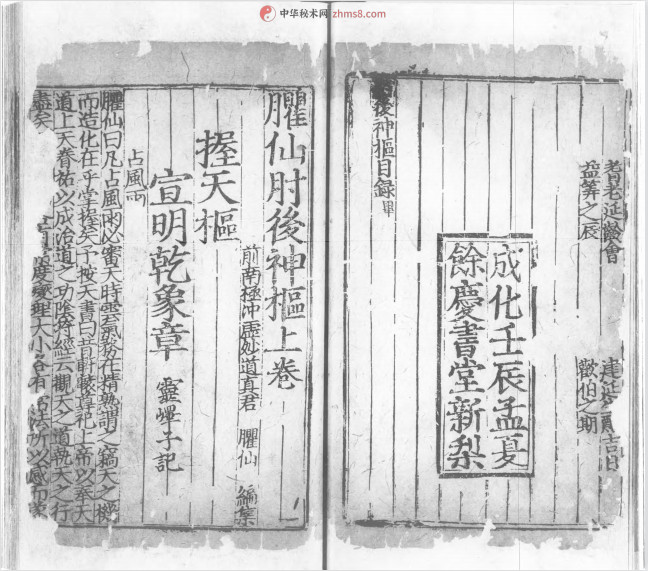 中华秘术网 zhms8.com
耆老延齡會
益筭之辰
建 吉日
歡伯之期
成化壬辰孟夏
餘慶書堂新梨
後神樞目錄畢
臞仙肘後神樞上卷
前南極沖虛妙道真君 臞仙 編集
握天樞
宣明乾象章 靈 子記
占風雨
臞仙曰凡占風雨必審天時雲氣務在精熟謂之竊天之機
而造化在乎掌握矣予按天書曰昔軒轅 祀上帝以奉天
道上天眷祐以成治道之功陰符經云觀天之道執天之行
盡矣 度燮理大小各有 法所以感而